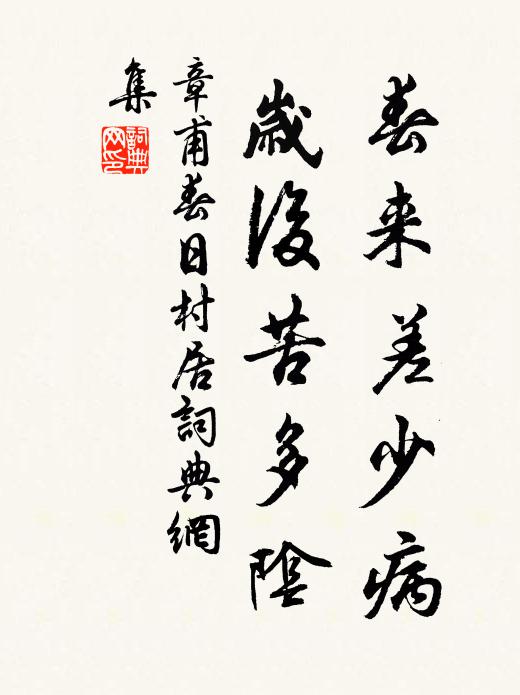 春来差少病
歲後苦多陰
章甫春日村居詞典網
集
詞典网印